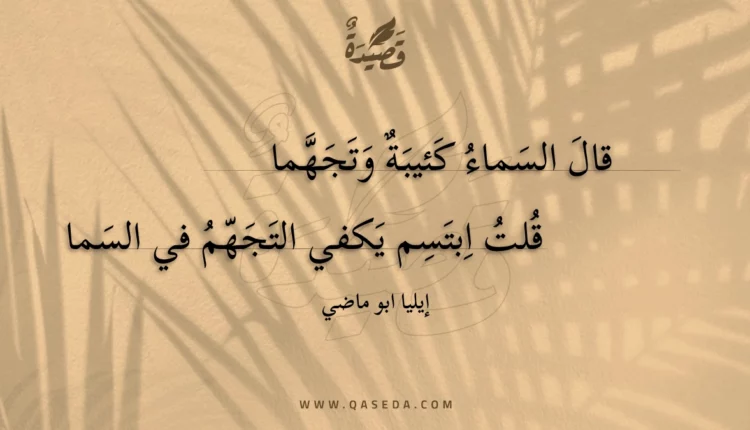 قَصِيْدَةٌ
قالَ السَماءُ كَئيبَةٌ وَتَجَهَّما
قُلتُ اِبتَسِم يَكفي التَجَهّمُ في السَما
إيليا ابو ماضي
WWW.QASEDA.COM